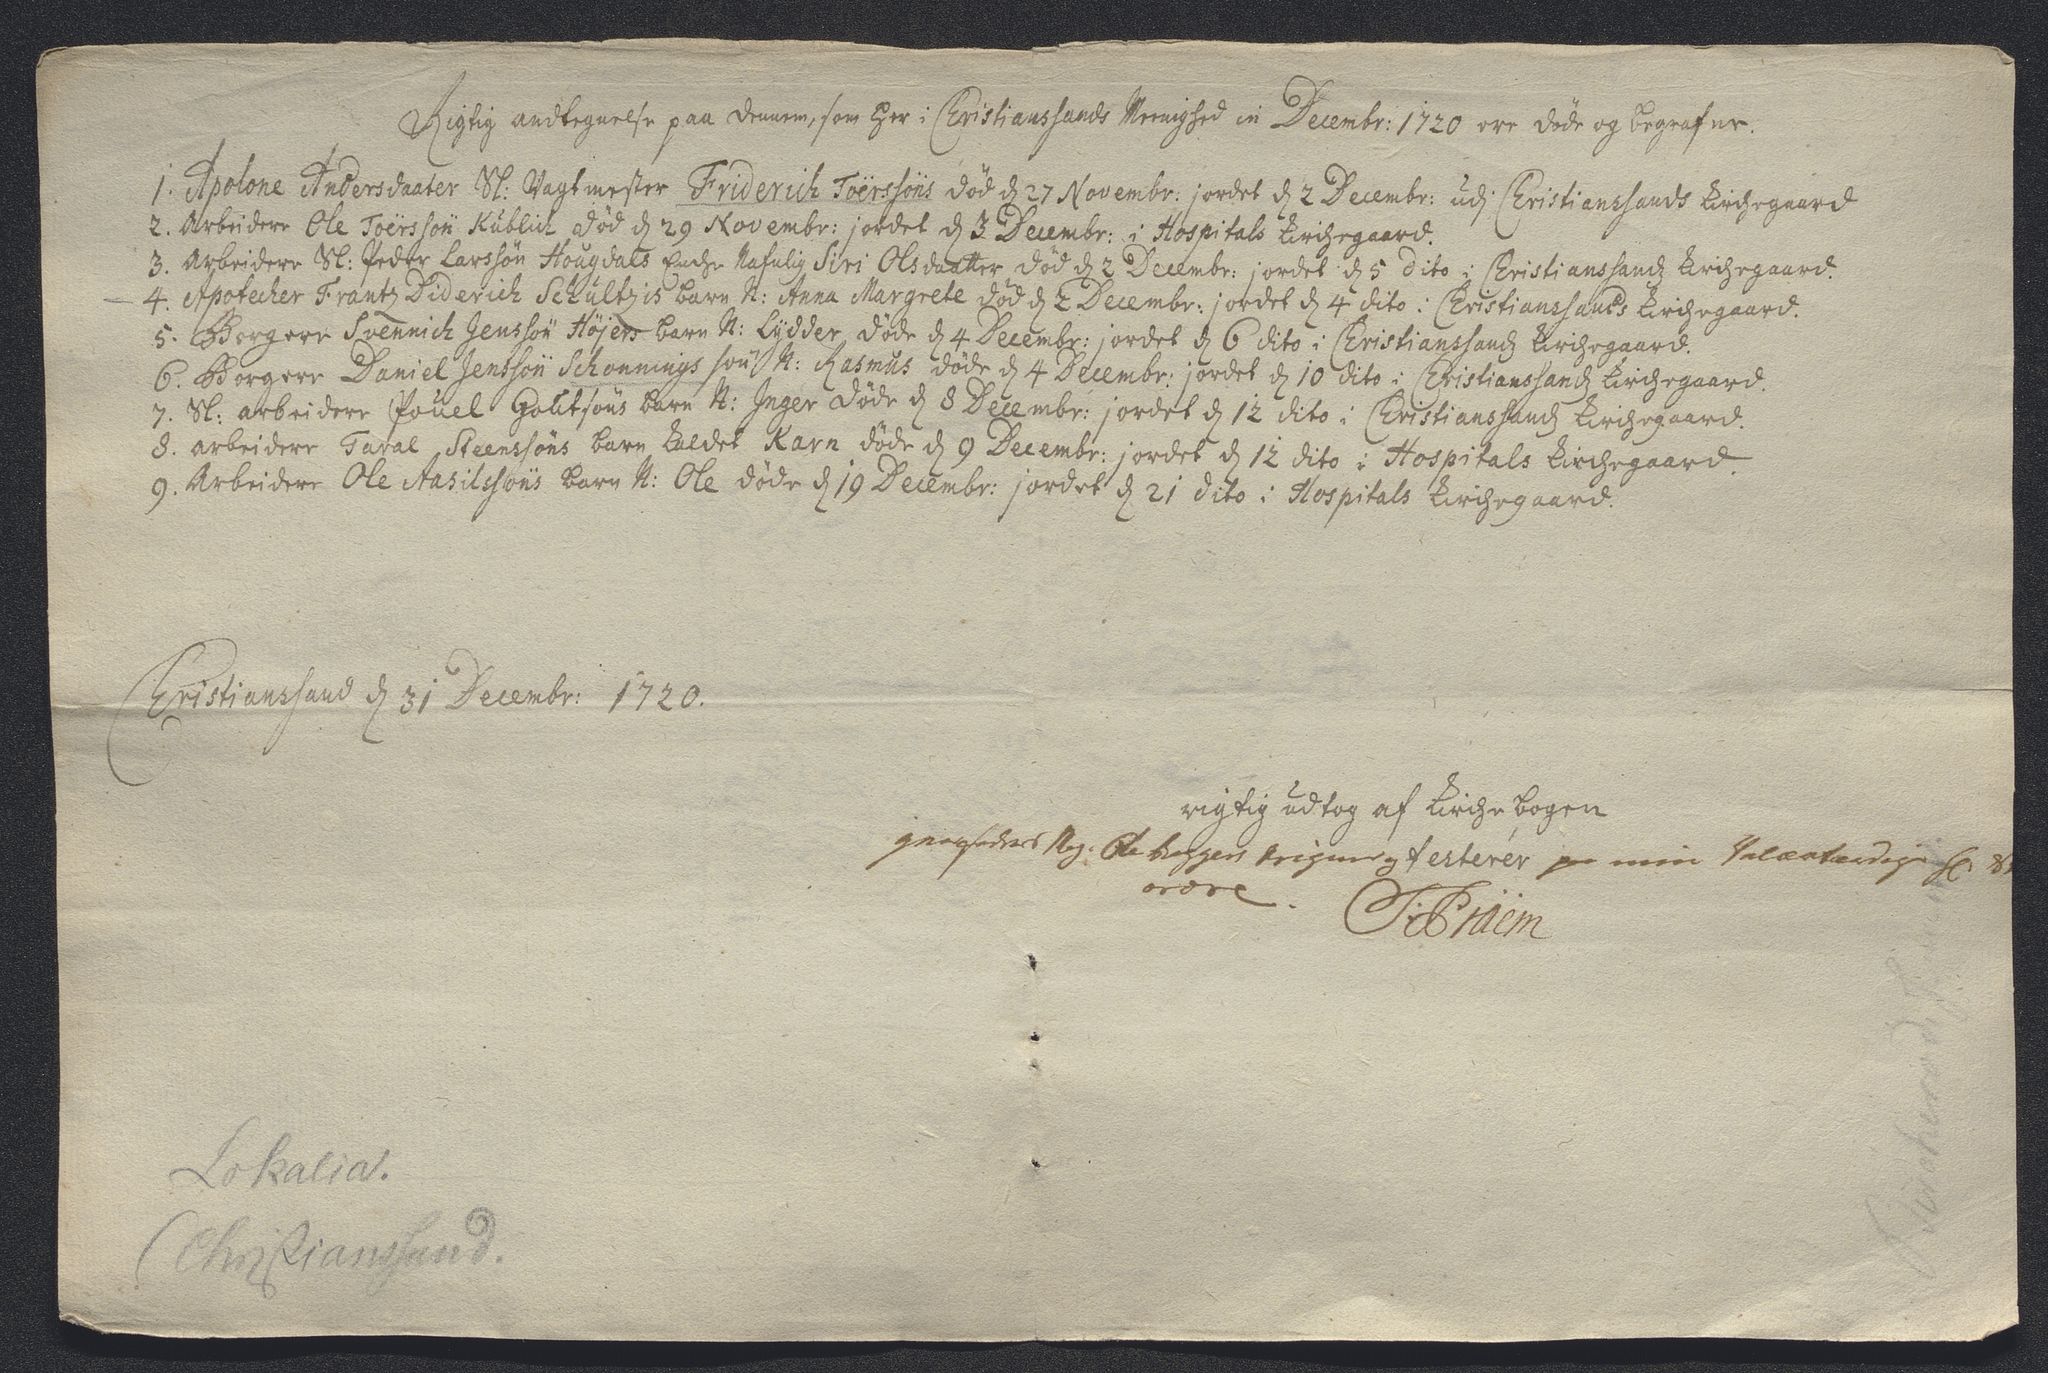 Rigtig andtegnelse paa dennem, som her i Christianssands Meenighed in Decembr: 1720 ere døde og begrafne.
1. Apolone Andersdaater Sl: Vagtmester Friderich Toërssöns død d 27 Novembr: jordet d 2 Decembr: udj Christianssands Kirchegaard
2. Arbeidere Ole Toërssön Kublich død d 29 Novembr: jordet d 3 Decembr: i Hospitals Kirchegaard.
3. Arbeidere Sl: Peder Larssön Hougdals Enche Nafnlig Siri Olsdaatter død d 2 Decembr: jordet d 5 dito i Christianssands Kirchegaard.
4. Apotecher Frantz Diderich Schultzis barn N: Anna Margrete død d 2 Decembr: jordet d 4 dito i Christianssands Kirchegaard.
5. Borgere Svennich Jenssön Höjers barn N: Lydder døde d 4 Decembr: jordet d 6 dito i Christianssands Kirchegaard.
6. Borgere Daniel Jenssön Schonnings sön N: Rasmus døde d 4 Decembr: jordet d 10 dito i Christianssands Kirchegaard.
7. Sl: arbeidere Pouel Golitsöns barn N: Inger døde d 8 Decembr: jordet d 12 dito i Christianssands Kirchegaard.
8. arbeidere Taral Steenssöns barn kaldet Karn døde d 9 Decembr: jordet d 12 dito i Hospitals Kirchegaard.
9. Arbeidere Ole Aasilssöns barn N: Ole døde d 19 Decembr: jordet d 21 dito i Hospitals Kirchegaard.
Christianssand d 31 Decembr: 1720.
rigtig udtog af Kirchebogen
testerer min
ordre.
Lokalia.
Christianssand.